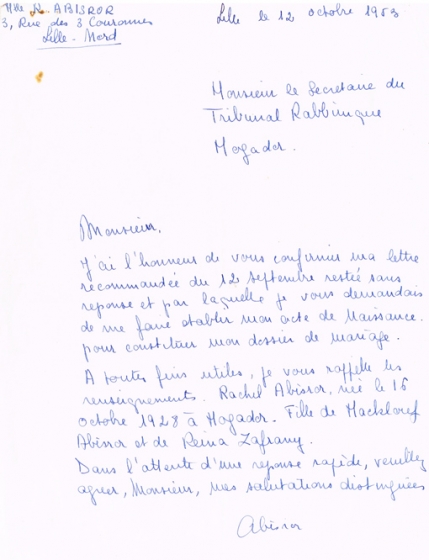 Mlle R. ABISROR
3, Rue des 3 Couronnes
Lille - Nord
Lille le 12 octobre 1953
Monsieur le Secretaire du
Tribunal Rabbinique
Mogador.
Monsieur,
J'ai l'honneur de vous confirmer ma lettre
recommandée du 12 Septembre restée sans
reponse et par laquelle je vous demandais
de me faire etablir mon acte de Naissance.
pour constituer mon dossier de mariage.
A toutes fins utiles, je vous rappelle les
renseignements. Rachel Abisror, née le 16
octobre 1928 à Mogador. Fille de Mackloref
Abisror et de Reina Zafrany.
Dans l'attente d'une reponse rapide, veuillez
agreer, Monsieur, mes salutations distinguées
Abisror